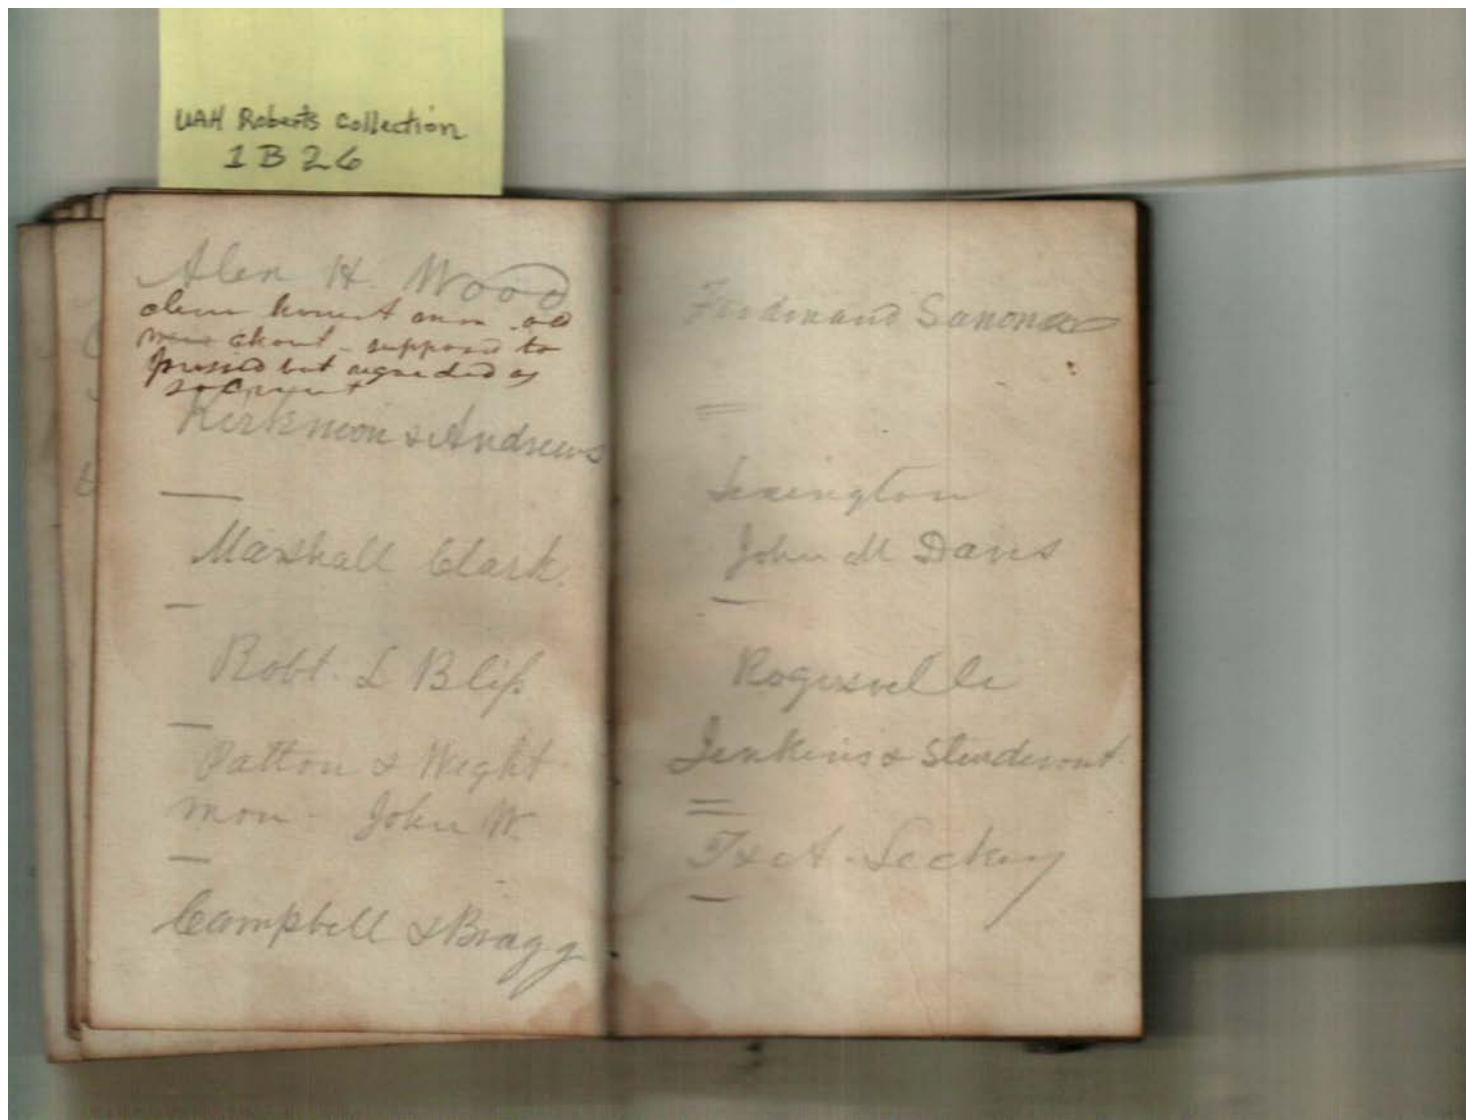 UAH Roberts Collection
1B26
Alex H. Wood
clever honest man old
about - supposed to
pressed but regarded as
solvent
Kirkman & Andrews
Marshall Clark.
Robt. L Bliss
Patton & Weight
man - John W.
Campbell & Bragg
Ferdinand Sanona
Lexington
John M Davis
Rogersville
Jenkins & Sturdevant
A. Leckey